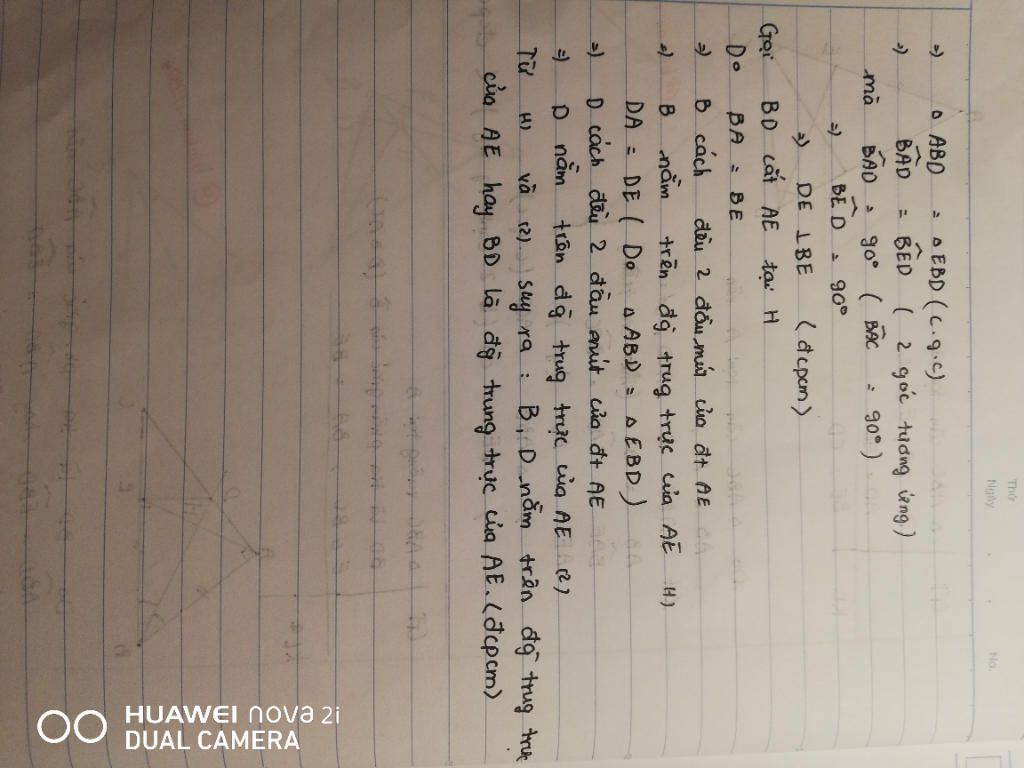 Thứ
Ngày
No.
⇒ △ ABD = △ EBD (c.g.c)
⇒ BÂD = BÊD ( 2 góc tương ứng )
mà BÂD = 90° ( BÂC = 90° )
⇒ BÊD = 90°
⇒ DE ⊥ BE (đcpcm)
Gọi BD cắt AE tại H
Do BA = BE
⇒ B cách đều 2 đầu mút của đt AE
⇒ B nằm trên đg trug trực của AE (1)
DA = DE ( Do △ ABD = △ EBD )
⇒ D cách đều 2 đầu mút của đt AE
⇒ D nằm trên đg trug trực của AE (2)
Từ (1) và (2) suy ra : B, D nằm trên đg trug trực
của AE hay BD là đg trung trực của AE. (đcpcm)
HUAWEI nova 2i
DUAL CAMERA